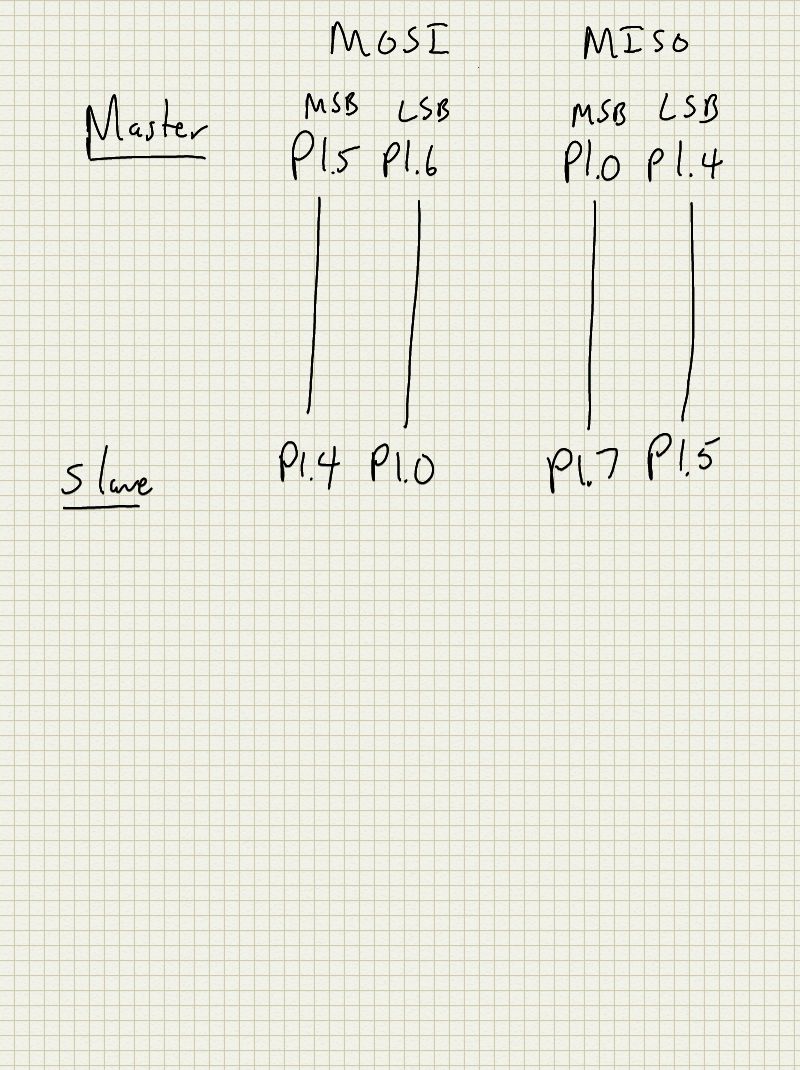 MOSI MISO
Master MSB LSB MSB LSB
P1.5 P1.6 P1.0 P1.4
Slave P1.4 P1.0 P1.7 P1.5